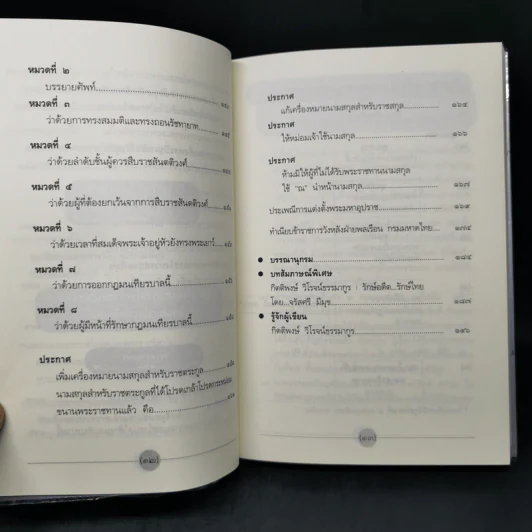 หมวดที่ ๒
บรรยายศัพท์
หมวดที่ ๓
ว่าด้วยการทรงสมมติและทรงถอนรัชทายาท
หมวดที่ ๔
ว่าด้วยลำดับชั้นผู้ควรสืบราชสันตติวงศ์
หมวดที่ ๕
ว่าด้วยผู้ที่ต้องยกเว้นจากการสืบราชสันตติวงศ์
หมวดที่ ๖
ว่าด้วยเวลาที่สมเด็จพระเจ้าอยู่หัวยังทรงพระเยาว์
หมวดที่ ๗
ว่าด้วยการออกกฎมนเทียรบาลนี้
หมวดที่ ๘
ว่าด้วยผู้มีหน้าที่รักษากฎมนเทียรบาลนี้
ประกาศ
เพิ่มเครื่องหมายนามสกุลสำหรับราชตระกูล
นามสกุลสำหรับราชตระกูลที่ได้โปรดเกล้าโปรดกระหม่อม
ขนานพระราชทานแล้ว คือ
(๓๒)
ประกาศ
แก้เครื่องหมายนามสกุลสำหรับราชสกุล ๑๖๔
ประกาศ
ให้หม่อมเจ้าใช้นามสกุล ๑๖๖
ประกาศ
ห้ามมิให้ผู้ที่ไม่ได้รับพระราชทานนามสกุล
ใช้ "ณ" นำหน้านามสกุล ๑๖๗
ประเพณีการแต่งตั้งพระมหาอุปราช ๑๖๙
ทำเนียบข้าราชการวังหลังฝ่ายพลเรือน กรมมหาดไทย ๑๗๔
● บรรณานุกรม ๑๘๕
● บทสัมภาษณ์พิเศษ
กิตติพงษ์ วิโรจน์ธรรมากูร : รักษ์อดีต...รักษ์ไทย
โดย...จรัสศรี มีมุข ๑๘๗
● รู้จักผู้เขียน
กิตติพงษ์ วิโรจน์ธรรมากูร ๑๙๖
(๓๓)